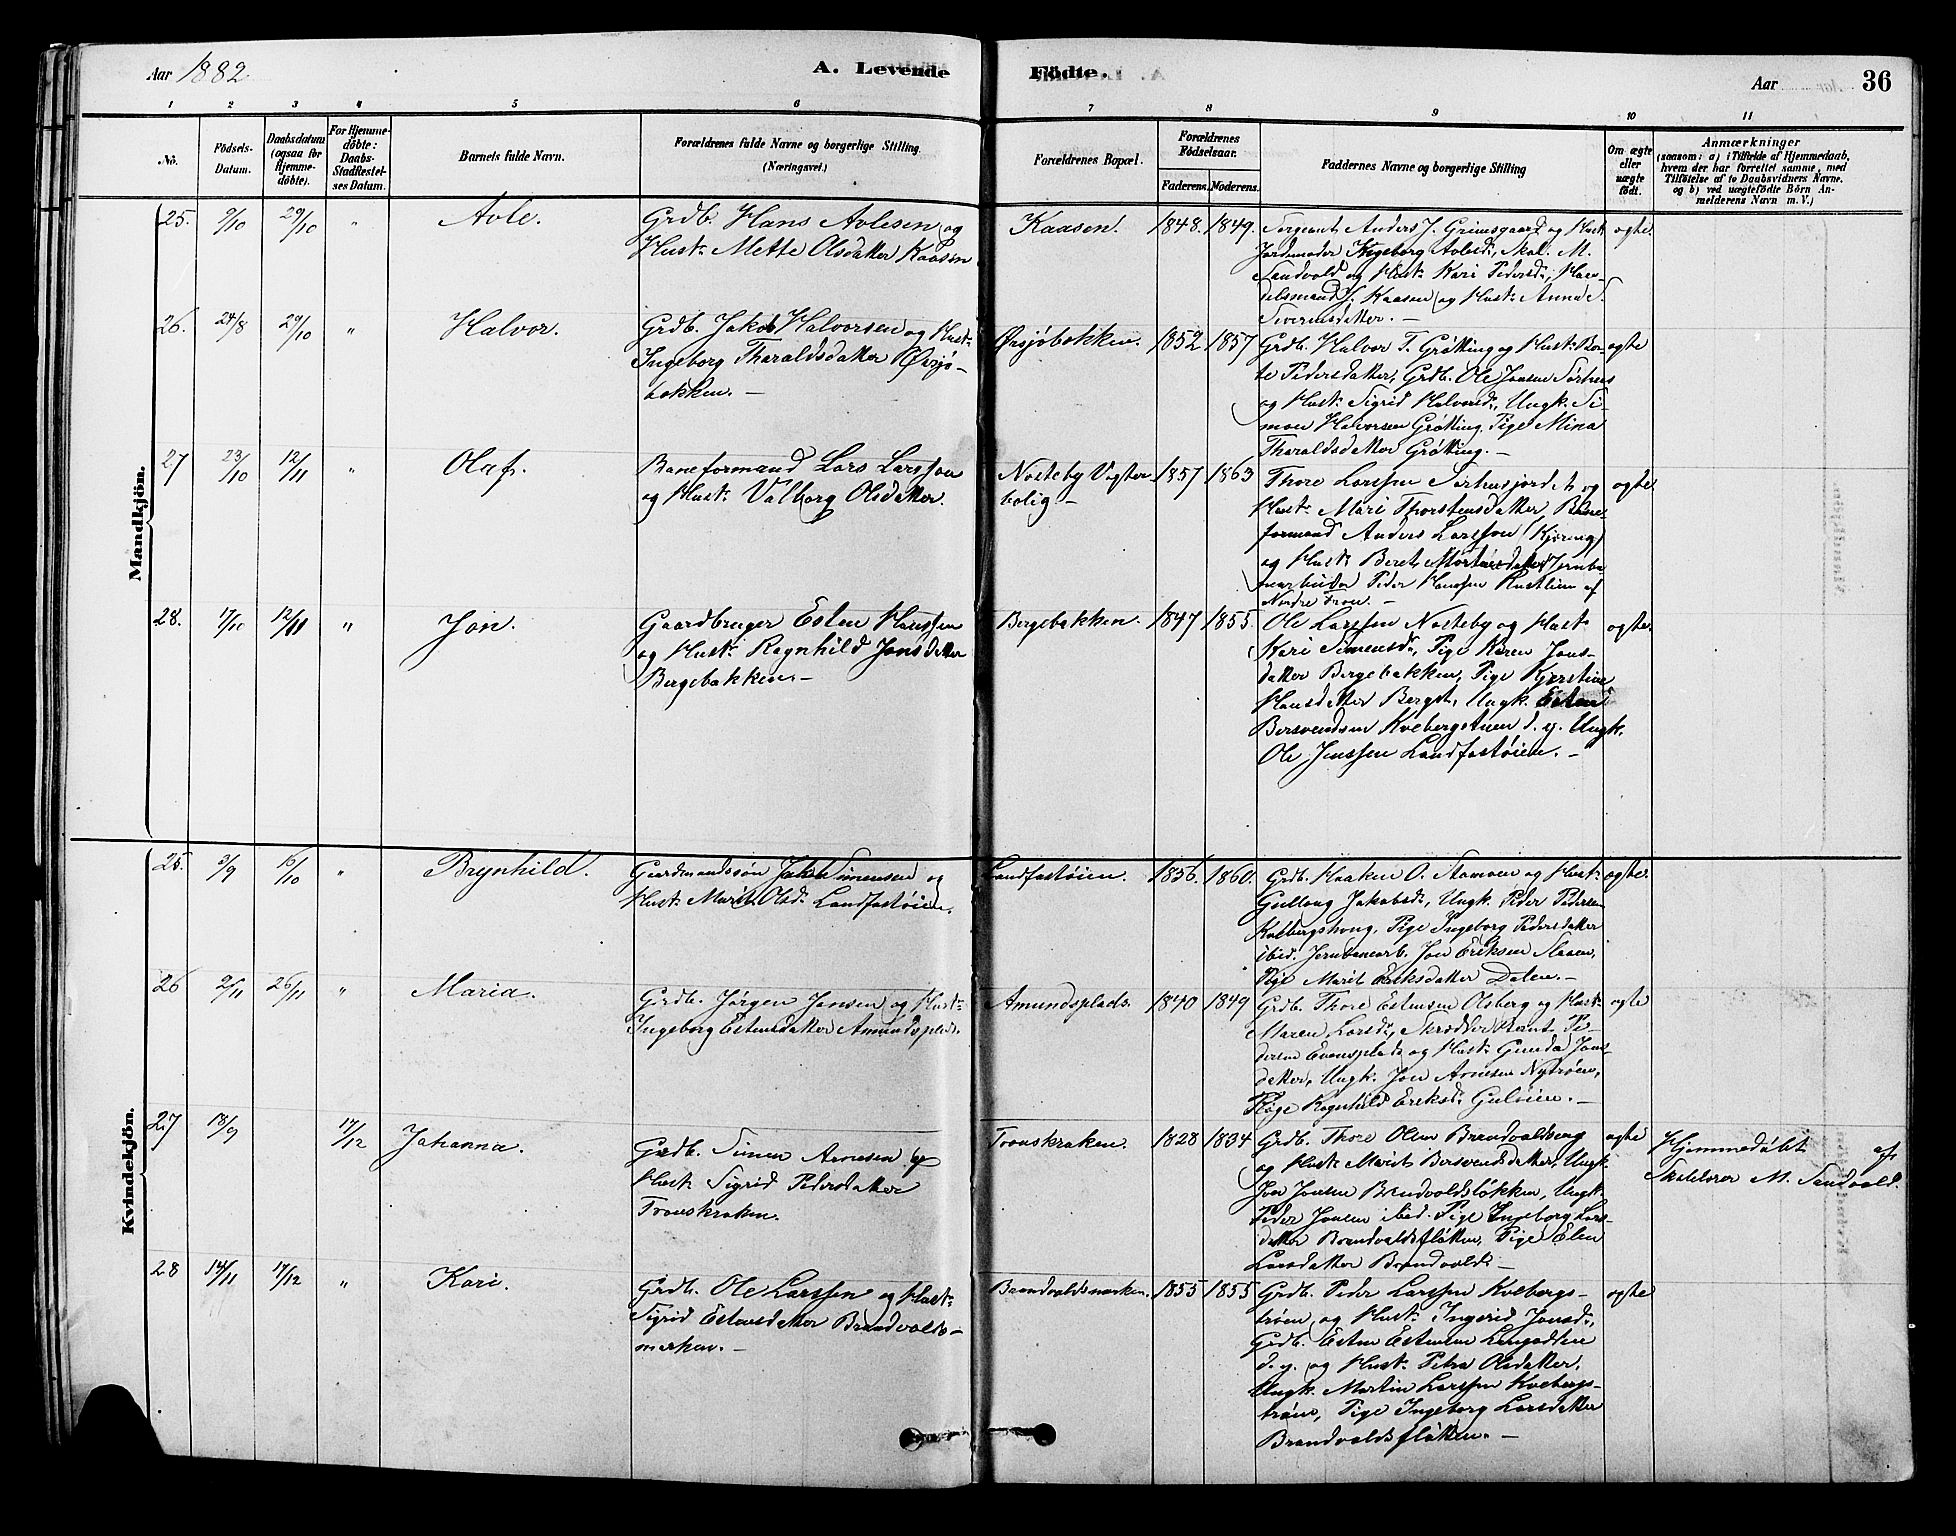 Aar 1882
A. Levende
Födte.
Aar
36
1 2 3 4 5 6 7 8 9 10 11
No.
Födsels-
Datum.
Daabsdatum
(ogsaa for
Hjemme-
döbte).
For Hjemme-
döbte:
Daabs-
Stadfæstel-
ses Datum.
Barnets fulde Navn.
Forældrenes fulde Navne og borgerlige Stilling.
(Næringsvei.)
Forældrenes Bopæl.
Forældrenes
Födselsaar.
Faderens. Moderens.
Faddernes Navne og borgerlige Stilling
Om ægte
eller
uægte
födt.
Anmærkninger
(saasom: a) i Tilfælde af Hjemmedaab,
hvem der har forrettet samme, med
Tilföielse af to Daabsvidners Navne.
og b) ved uegtefödte Börn An-
melderens Navn m. V.)
Mandkjön.
25. 9/10 29/10 " Avle.
Grdb. Hans Avlesen og
Hust: Mette Olsdatter Kaasen
Kaasen. 1848. 1849.
Sergeant Anders J. Grimsgaard og Hust
Jordmoder Ingeborg Avlesd:, Skol. M.
Sandvold og Hust: Kari Pedersd:, Han-
delsmand J. Kaasen og Hust: Anna S.
Siversdatter. —
ægte.
26. 24/8 29/10 " Halvor.
Grdb. Jakob Halvorsen og Hust:
Ingeborg Tharaldsdatter Örsjö-
bakken. —
Örsjöbakken. 1852 1857
Grdb. Halvor T. Grötting og Hust: Be-
te Pedersdatter, Grdb. Ole Jonsen Sörhus
og Hust: Sigrid Halvorsd:, Ungk. Si-
mon Halvorsen Grötting. Pige Mina
Tharaldsdatter Grötting. —
ægte
27 23/10 12/11 " Olaf.
Baneformand Lars Larsson
og Hust: Valborg Olsdatter.
Nosteby Vogter
bolig — 1857 1863
Thore Larssen Sörhusjordet og
Hust: Mari Thorstensdatter Bane-
formand Anders Larsson (Kjöreng)
og Hust: Beret Mortensdatter Jernba
nearbeider Peder Hanssen Rustlien af
Nordre Fron. —
ægte.
28. 17/10 12/11 " Jon.
Gaardbruger Esten Hanssen
og Hust: Ragnhild Jonsdatter
Bergebakken. —
Bergebakken. 1847 1855.
Ole Larssen Nosteby og Hust:
Kari Simensd:, Pige Karen Jons-
datter Bergebakken, Pige Kjerstine
Hansdatter Berget, Ungk. Esten
Bersvendsen Kvebergstuen d. y. Ungk.
Ole Jenssen Landfastöien. —
ægte.
Kvindekjön.
25. 3/9 15/10 " Brynhild.
Gaardmandssön Jakob Simensen og
Hust: Marit Olsd: Landfastöien.
Landfastöien. 1856. 1860.
Grdb. Haaken O. Stamoen og Hust:
Gullaug Jakobsd:, Ungk. Peder Pedersen
Kvebergshaug, Pige Ingeborg Pedersdatter
ibid. Jernbanearb. Jon Eriksen Slaaen,
Pige Marit Eriksdatter Dalen. —
ægte.
26 2/11 26/11 " Maria.
Grdb. Jörgen Jonsen og Hust:
Ingeborg Estensdatter Amundsplads.
Amundsplads. 1840 1849
Grdb. Thore Estensen Olsberg og Hust:
Maren Larsd:, Skrædder Bernt Pe-
dersen Evensplads og Hust: Gunda Jons-
datter, Ungk. Jon Arnesen Nytröen,
Pige Ragnhild Eriksd: Gulöien. —
ægte
27 18/9 17/12 Johanna.
Grdb. Simen Arnesen og
Hust: Sigrid Pedersdatter
Tronskraken.
Tronskraken. 1828 1834
Grdb. Thore Olsen Brandvoldseng
og Hust: Marit Bersvendsdatter, Ungk.
Jon Jonsen Brandvoldslökken, Ungk.
Peder Jonsen ibid. Pige Ingeborg Lars-
datter Brandvoldsflötten, Pige Elen
Larsdatter Brandvold. —
ægte
Hjemmedöbt af
Skolelærer M. Sandvold.
28 14/11 17/12 " Kari.
Grdb. Ole Larssen og Hust:
Sigrid Estensdatter Brandvolds-
marken. —
Brandvoldsmarken. 1855 1855
Grdb. Peder Larssen Kvebergs-
tröen og Hust: Ingerid Jonsd:,
Grdb. Esten Estensen Langodden
d. y. og Hust: Petra Olsdatter,
Ungk. Martin Larssen Kvebergs-
tröen, Pige Ingeborg Larsdatter
Brandvoldsflötten. —
ægte